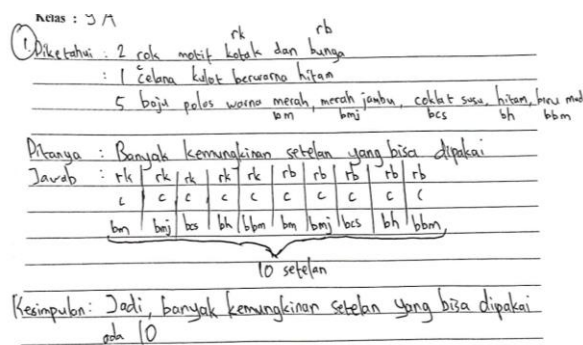 Kelas : 9 A
rk rb
1. Diketahui : 2 rok motif kotak dan bunga
: 1 celana kulot berwarna hitam
5 baju polos warna merah, merah jambu, coklat susu, hitam, biru
bm bmj bcs bh bbm
Ditanya : Banyak kemungkinan setelan yang bisa dipakai
Jawab : rk | rk | rk | rk | rk | rb | rb | rb | rb | rb
c | c | c | c | c | c | c | c | c | c
bm | bmj | bcs | bh | bbm | bm | bmj | bcs | bh | bbm
10 setelan
Kesimpulan : Jadi, banyak kemungkinan setelan yang bisa dipakai
ada 10